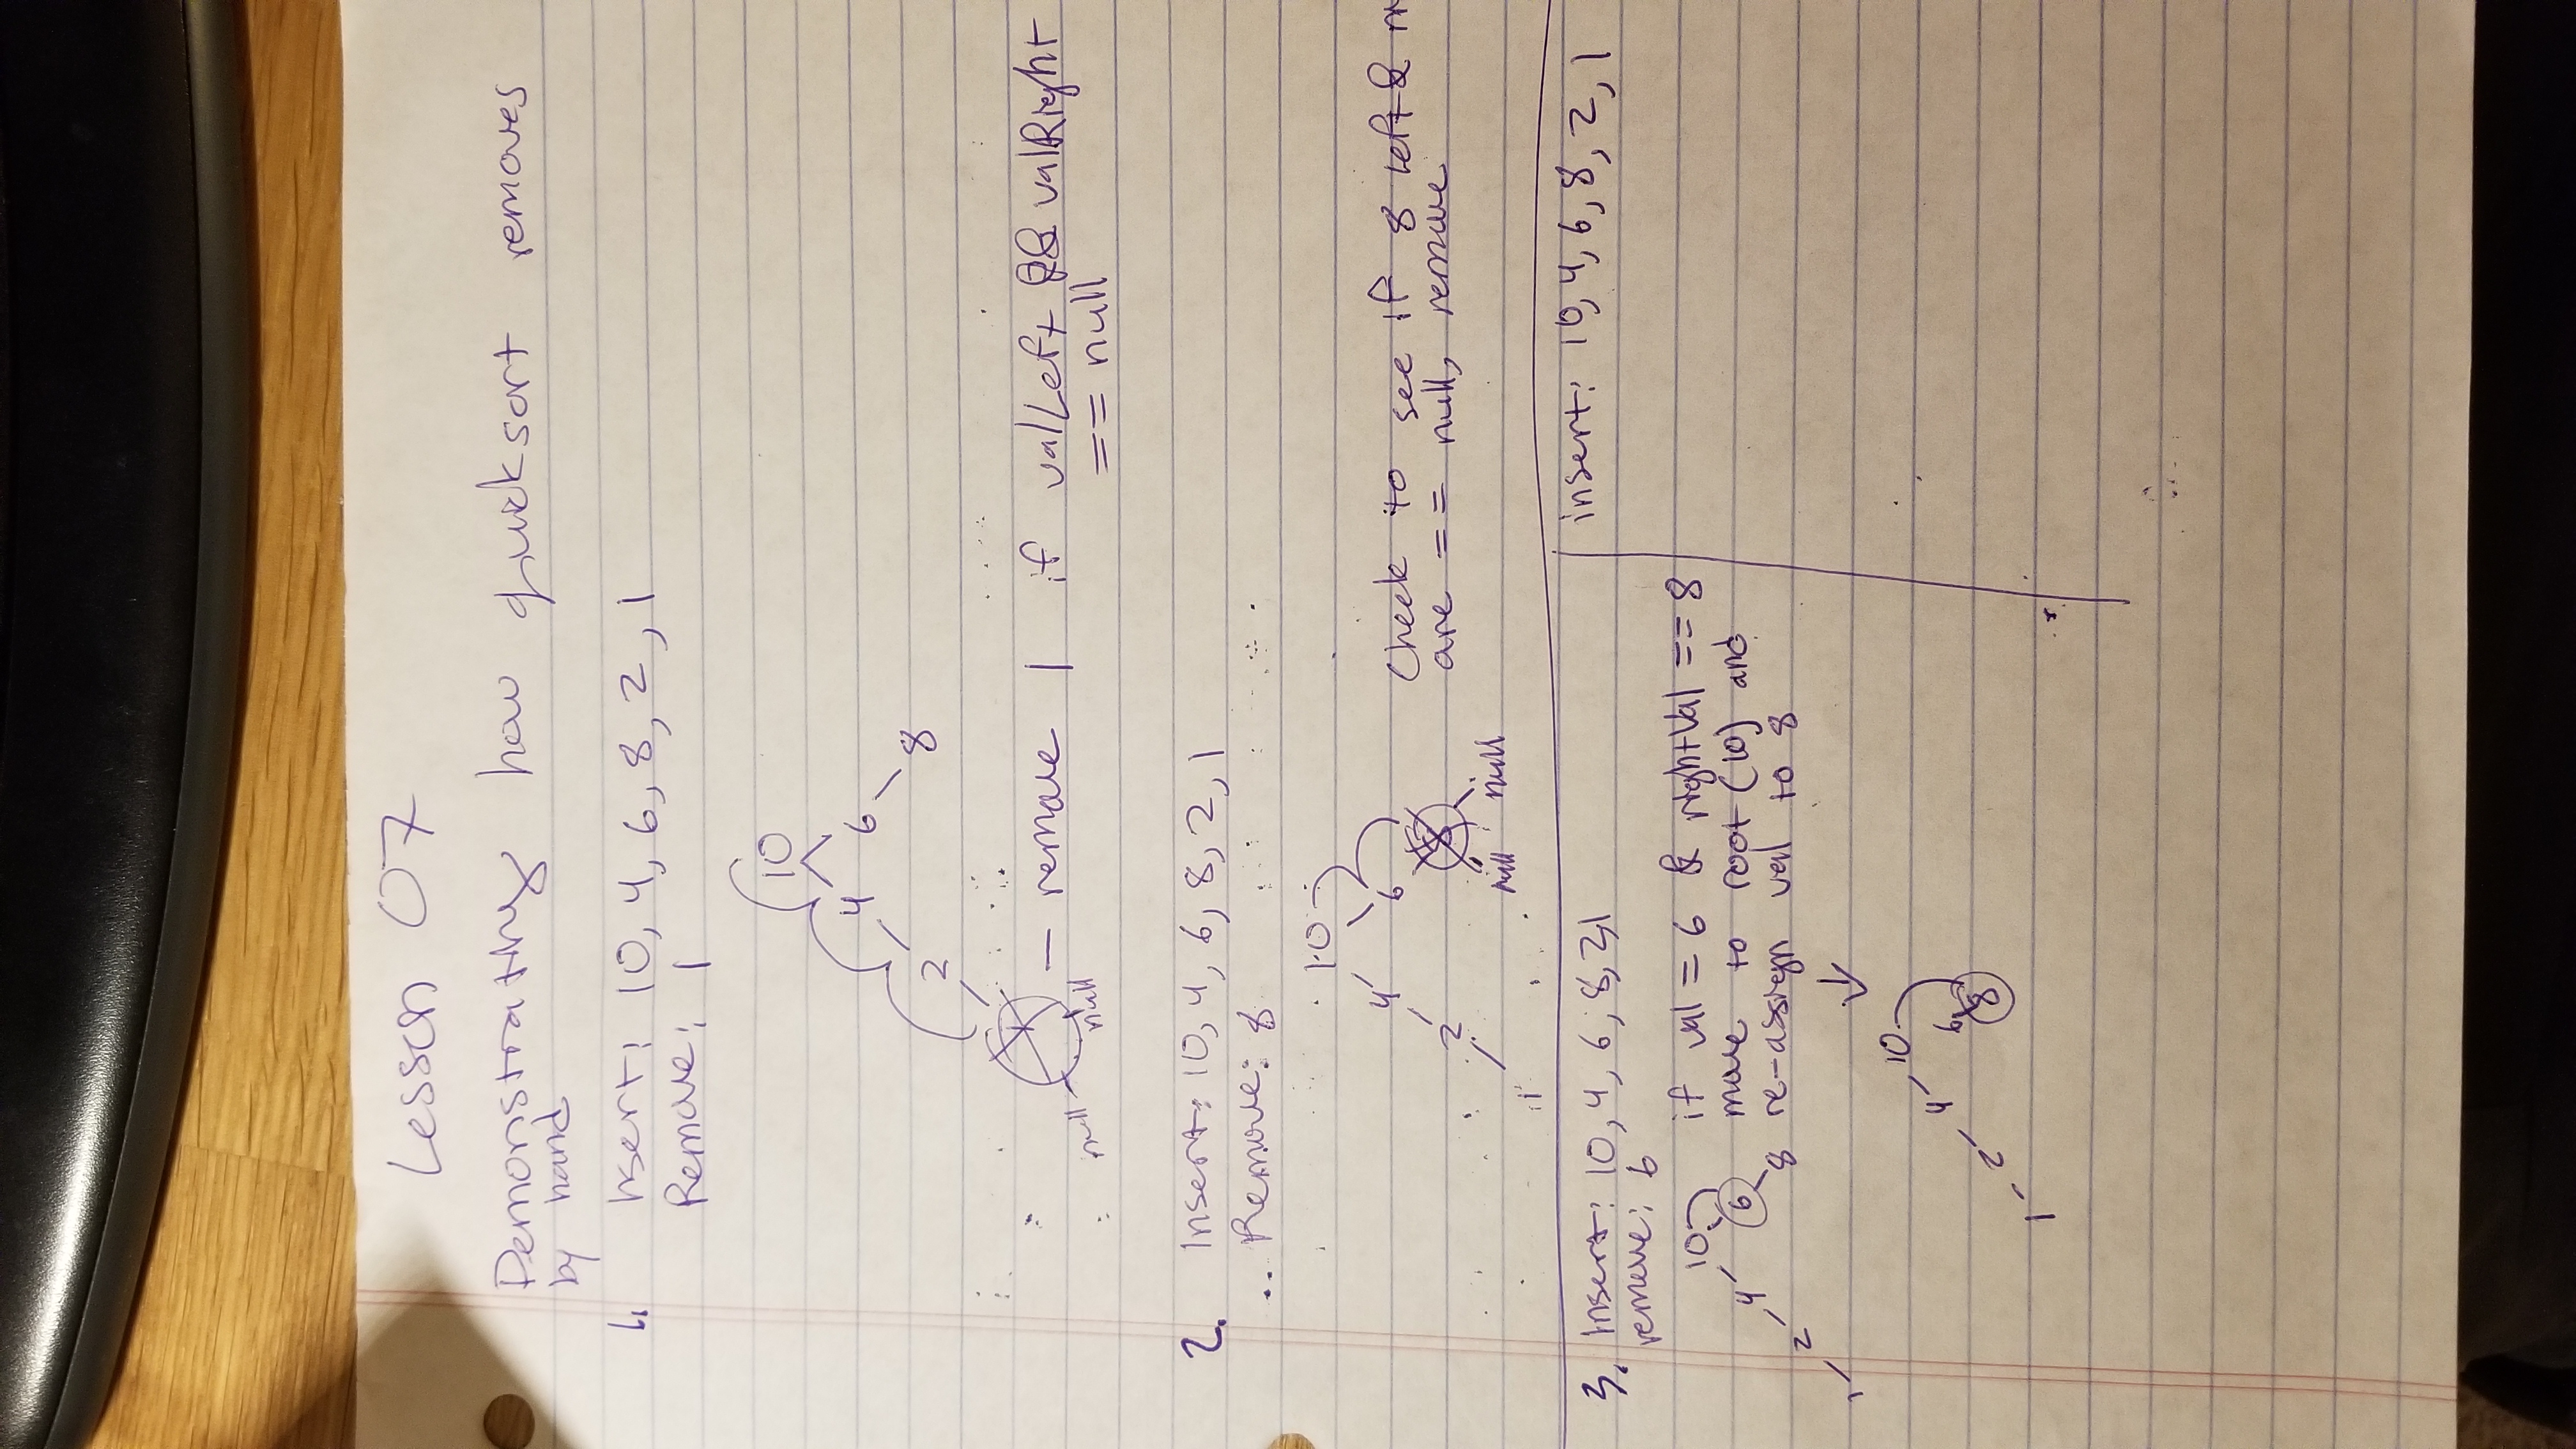 Lesson 07
Demonstrating how quicksort removes
by hand
1. Insert: 10, 4, 6, 8, 2, 1
Remove: 1
10
4 6
2 8
1
null null
— remove 1 if valLeft && valRight
== null
2. Insert: 10, 4, 6, 8, 2, 1
Remove: 8
10
4 6
2 8
null null
1
Check to see if 8 left &
are == null, remove
3. Insert: 10, 4, 6, 8, 2, 1
remove: 6
10
4 6
2 8
1
if val = 6 & rightVal == 8
move to root (10) and
re-assign val to 8
↓
10
4 6
2 8
1
insert: 10, 4, 6, 8, 2, 1